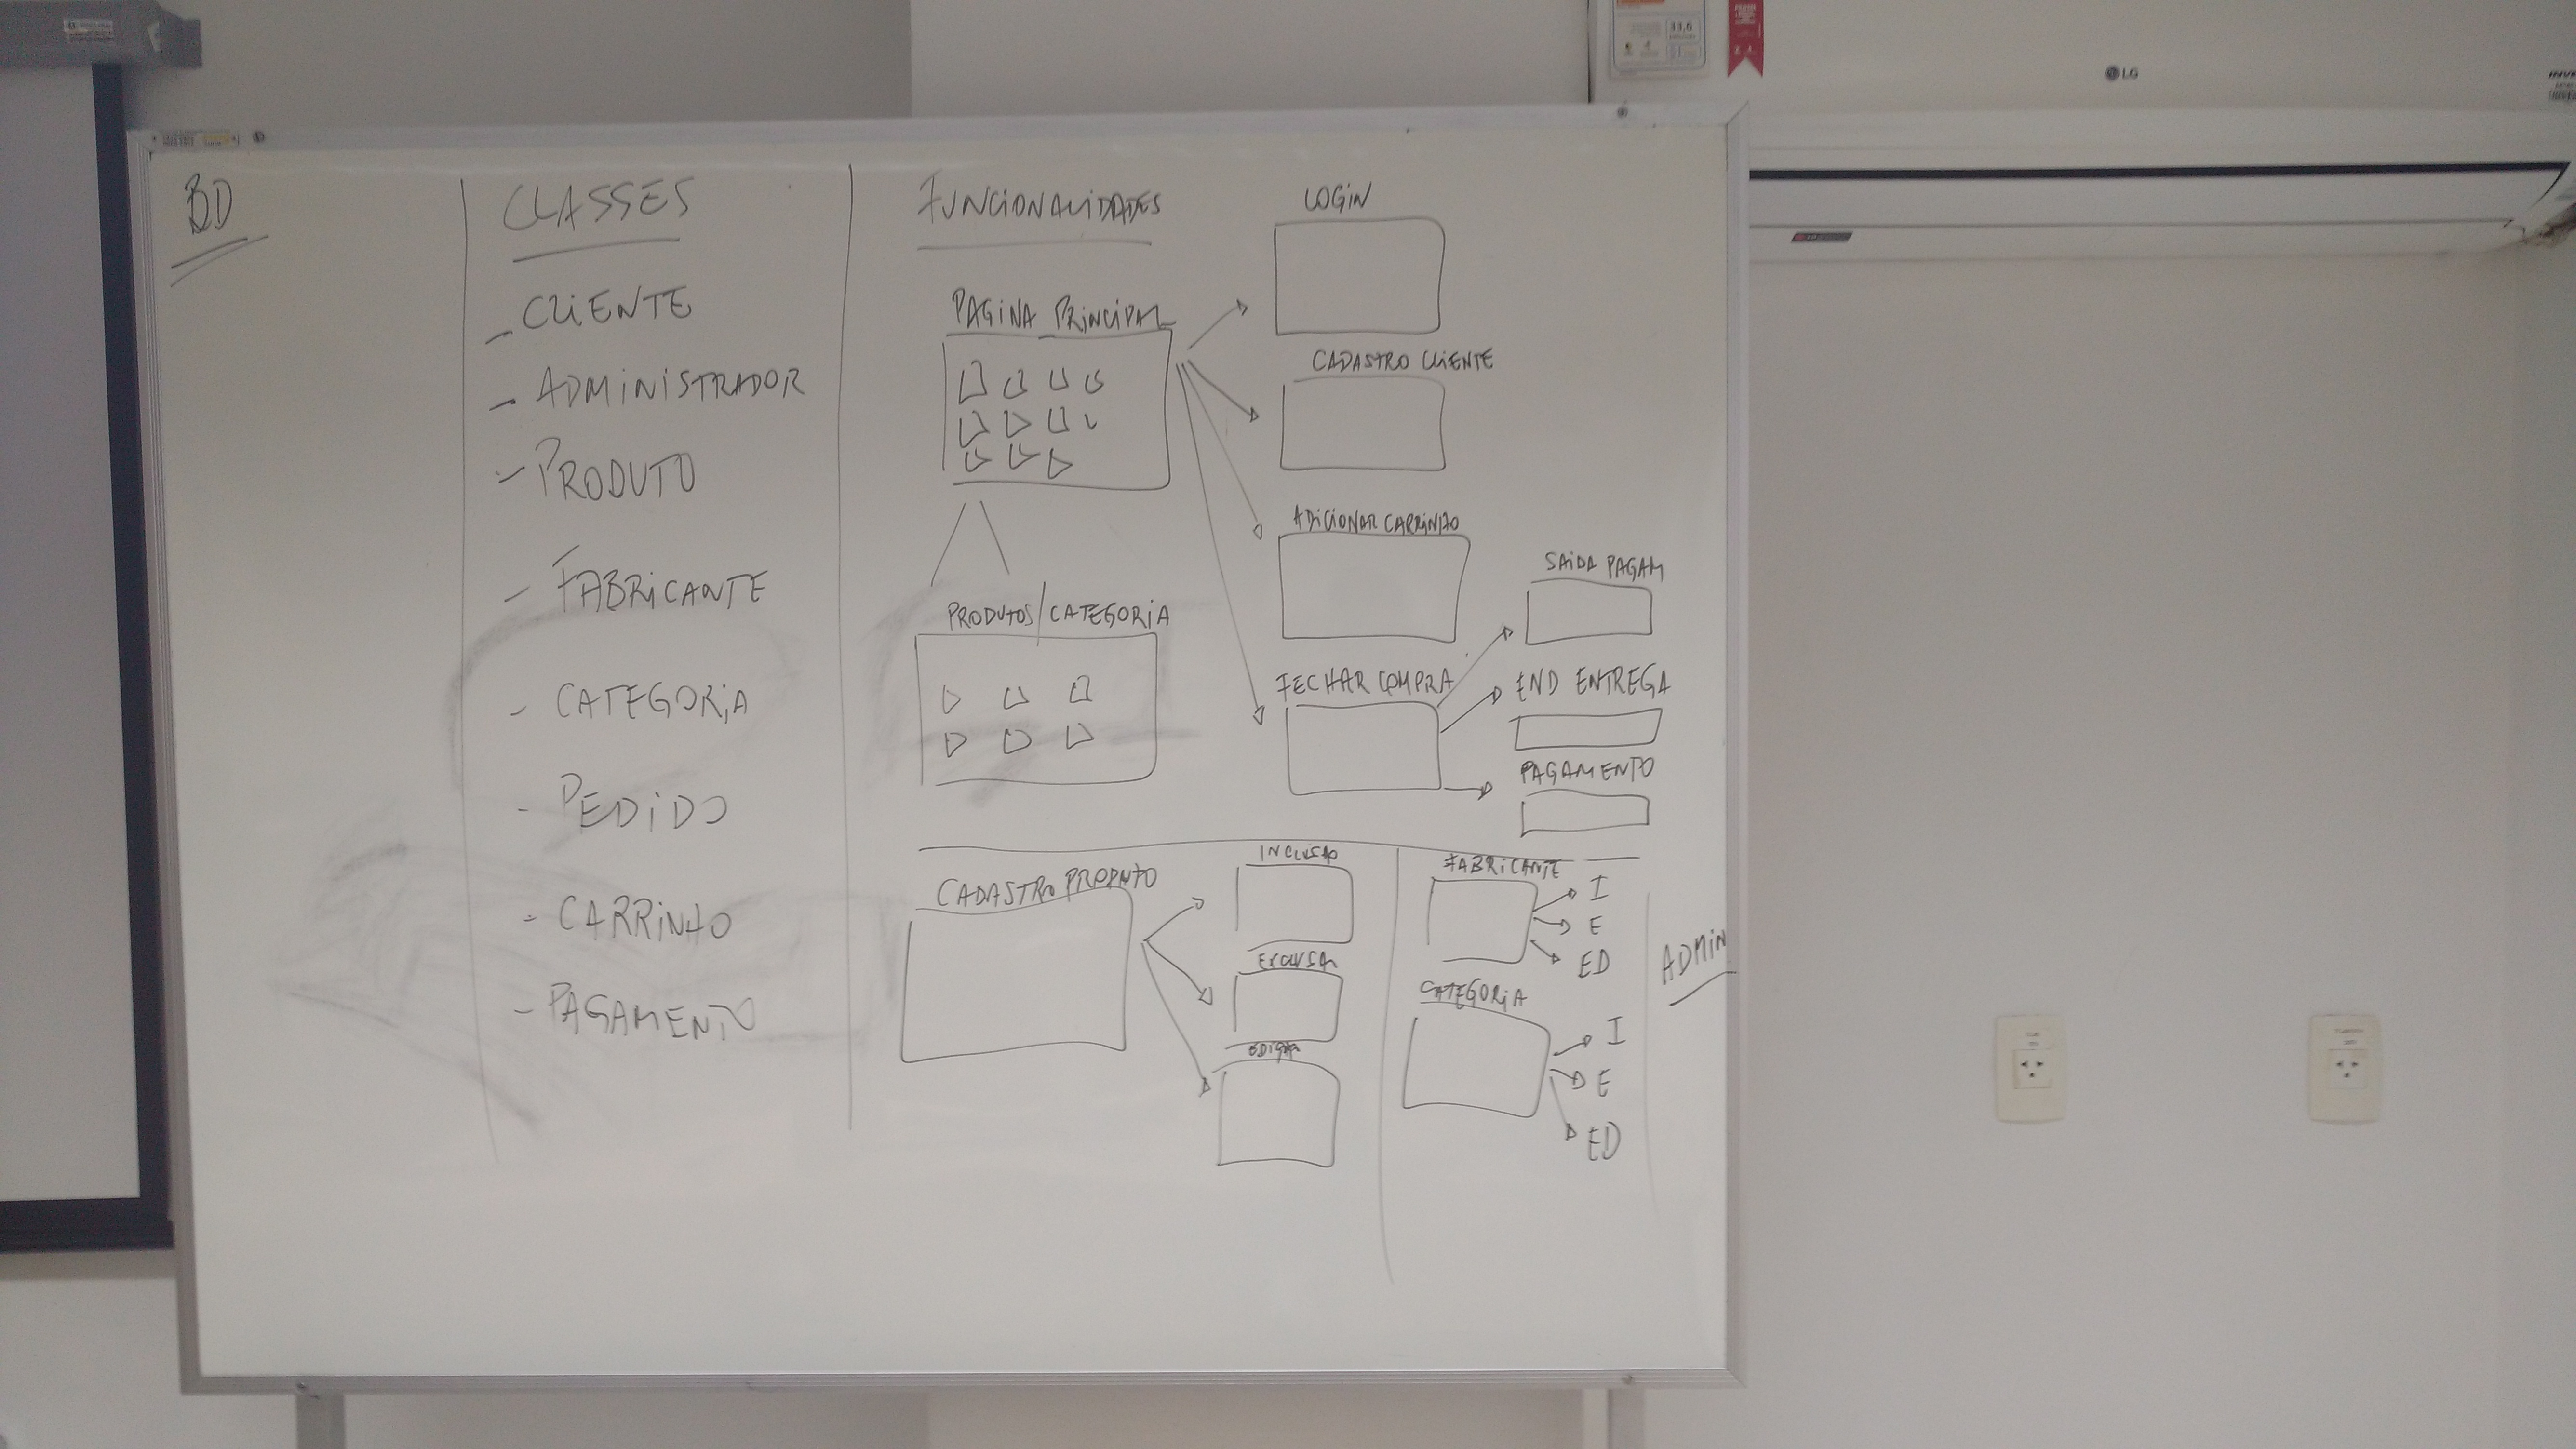 BD
CLASSES
- CLIENTE
- ADMINISTRADOR
- PRODUTO
- FABRICANTE
- CATEGORIA
- PEDIDO
- CARRINHO
- PAGAMENTO
FUNCIONALIDADES
PAGINA PRINCIPAL
PRODUTOS/CATEGORIA
LOGIN
CADASTRO CLIENTE
ADICIONAR CARRINHO
FECHAR COMPRA
SAIDA PAGAM
END ENTREGA
PAGAMENTO
CADASTRO PRODUTO
INCLUSAO
EXCLUSAO
EDIÇÃO
FABRICANTE
I
E
ED
CATEGORIA
I
E
ED
ADMIN
LG
33,6